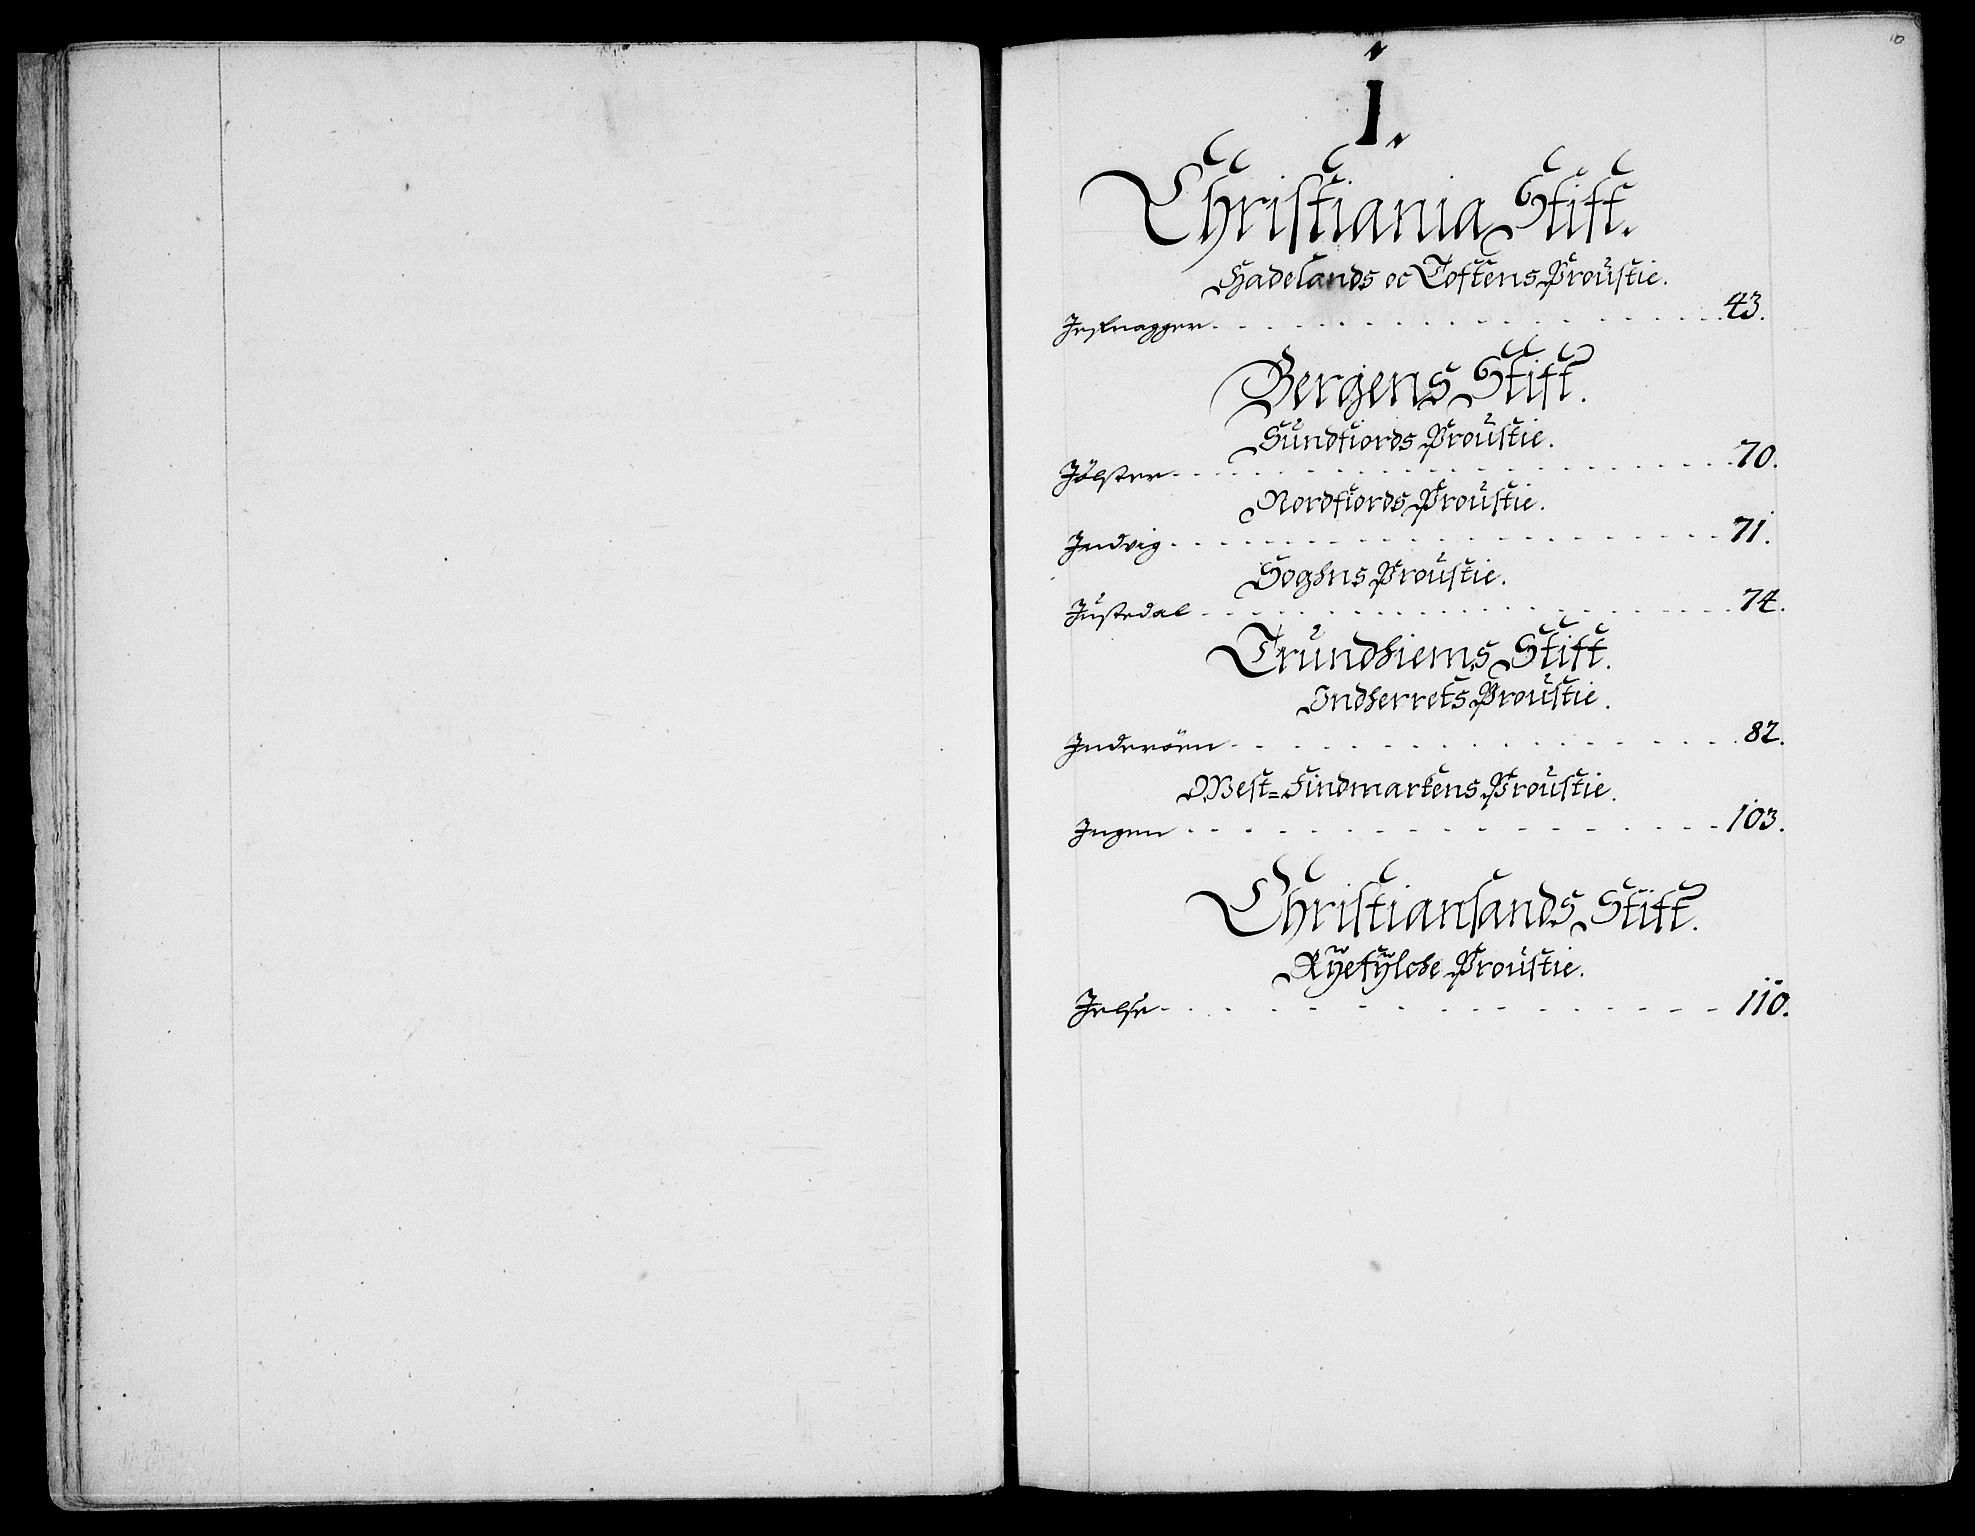 10
I.
Christiania Stift.
Hadelands oc Toftens Proustie.
Jeslnagger 43.
Bergens Stift.
Sundfiords Proustie.
Jölster 70.
Nordfiords Proustie.
Indvig 71.
Soghns Proustie.
Justedal 74.
Trundhiems Stift.
Indherrets Proustie.
Inderöen 82.
West=Findmarkens Proustie.
Ingen 103.
Christiansands Stift.
Ryefylche Proustie.
Jelse 110.